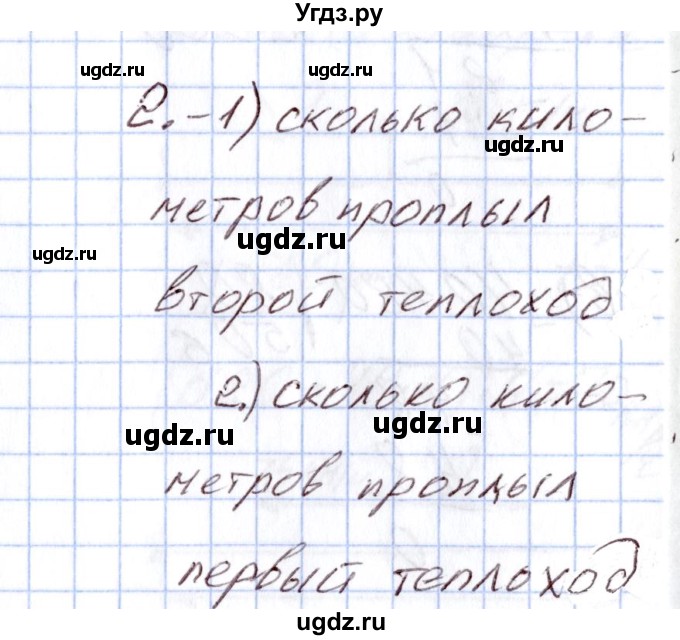 Угдз.ру
ugdz.ru ugdz.ru
2.-1) сколько кило-
ugdz.ru
метров проплыл
ugdz.ru
ugdz.ru
второй теплоход
2.) сколько кило-
ugdz.ru ugdz.ru
метров проплыл
первый теплоход
ugdz.ru